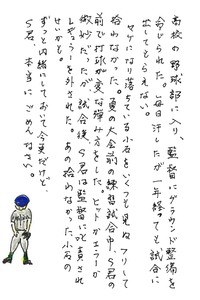 高校の野球部に入り、監督にグラウンド整備を
命じられた。毎日汗したが一年経っても試合に
出してもらえない。
ヤケになり落ちている小石をいくつも見ねフリして
拾わなかった。夏の大会前の練習試合中、S君の
前で打球が変な弾み方をした。ヒットかエラーか
微妙だったが試合後、S君は監督に叱責され
レギュラーを外された。あの拾わなかった小石の
せいかも。
ずっと内緒にしておいて今更だけど、
S君、本当にごめんなさい。